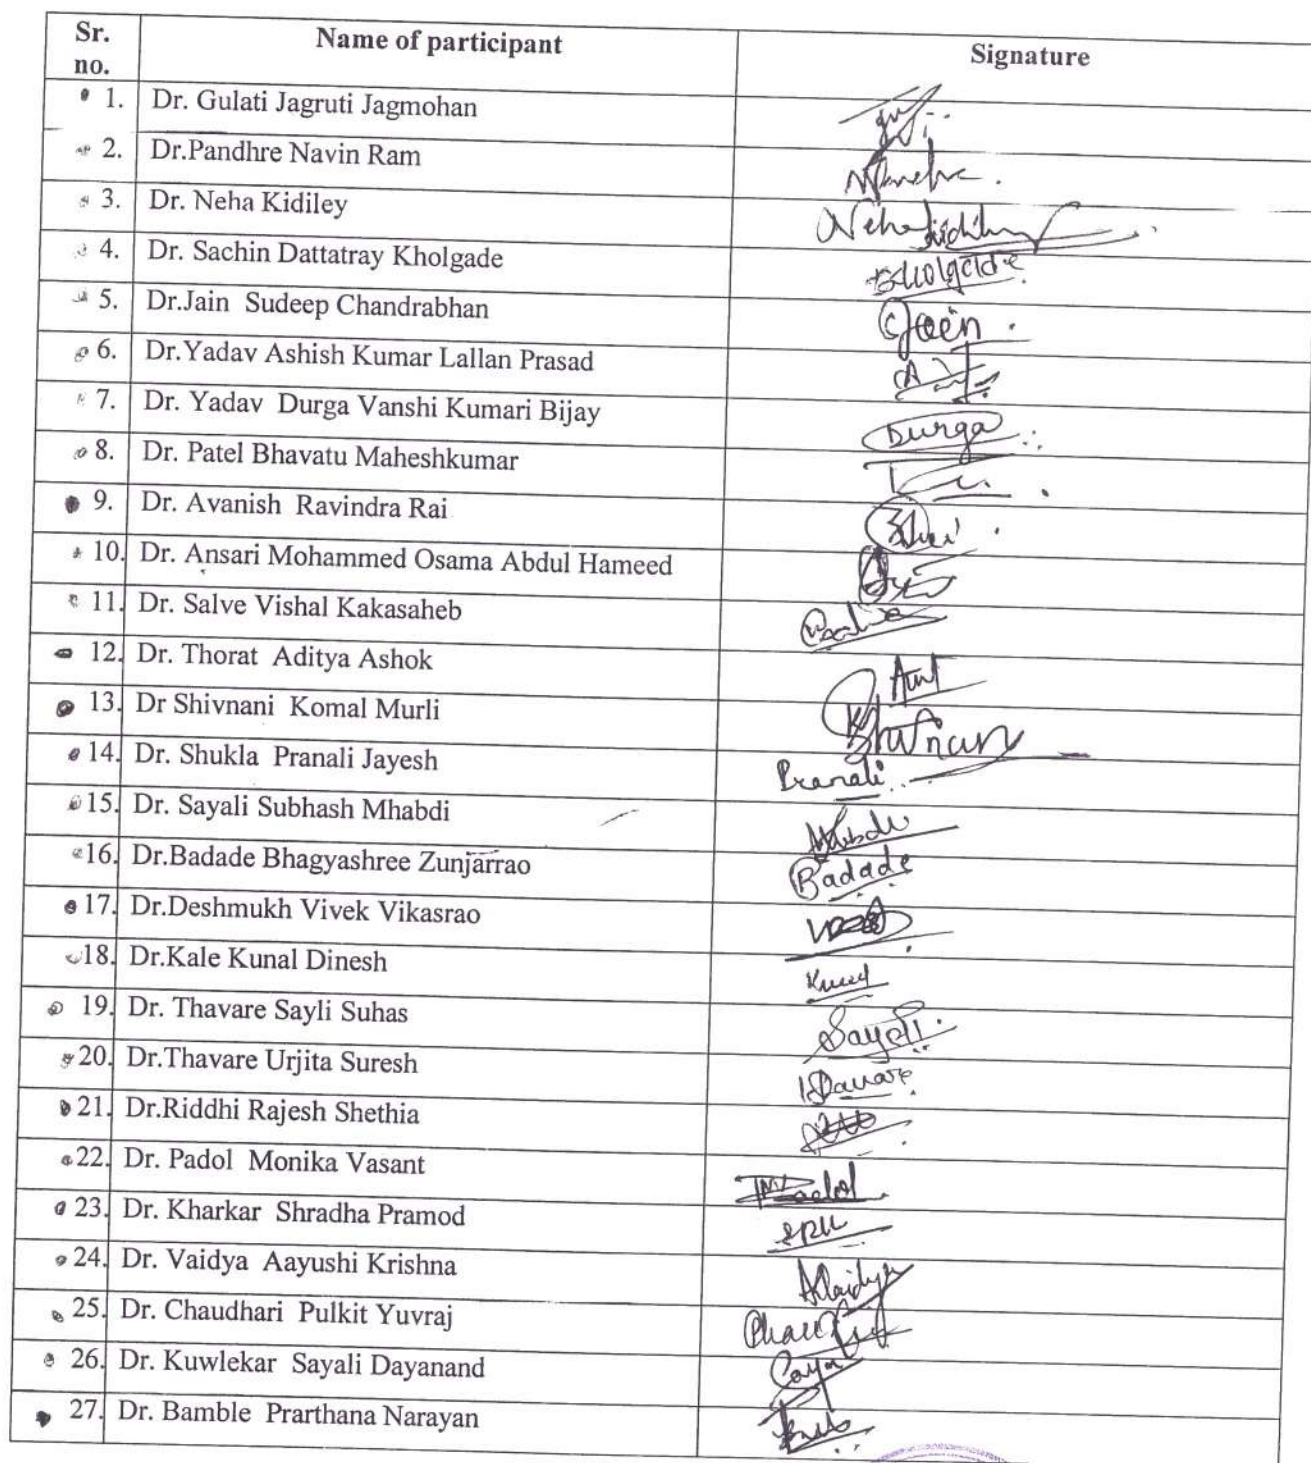 Sr. no. Name of participant Signature
1. Dr. Gulati Jagruti Jagmohan
2. Dr.Pandhre Navin Ram
3. Dr. Neha Kidiley Neha
4. Dr. Sachin Dattatray Kholgade Kholgade
5. Dr.Jain Sudeep Chandrabhan
6. Dr.Yadav Ashish Kumar Lallan Prasad
7. Dr. Yadav Durga Vanshi Kumari Bijay Durga
8. Dr. Patel Bhavatu Maheshkumar
9. Dr. Avanish Ravindra Rai
10. Dr. Ansari Mohammed Osama Abdul Hameed
11. Dr. Salve Vishal Kakasaheb
12. Dr. Thorat Aditya Ashok
13. Dr Shivnani Komal Murli
14. Dr. Shukla Pranali Jayesh Pranali
15. Dr. Sayali Subhash Mhabdi
16. Dr.Badade Bhagyashree Zunjarrao Badade
17. Dr.Deshmukh Vivek Vikasrao
18. Dr.Kale Kunal Dinesh
19. Dr. Thavare Sayli Suhas Sayali
20. Dr.Thavare Urjita Suresh
21. Dr.Riddhi Rajesh Shethia
22. Dr. Padol Monika Vasant
23. Dr. Kharkar Shradha Pramod SPK
24. Dr. Vaidya Aayushi Krishna AVaidya
25. Dr. Chaudhari Pulkit Yuvraj
26. Dr. Kuwlekar Sayali Dayanand
27. Dr. Bamble Prarthana Narayan